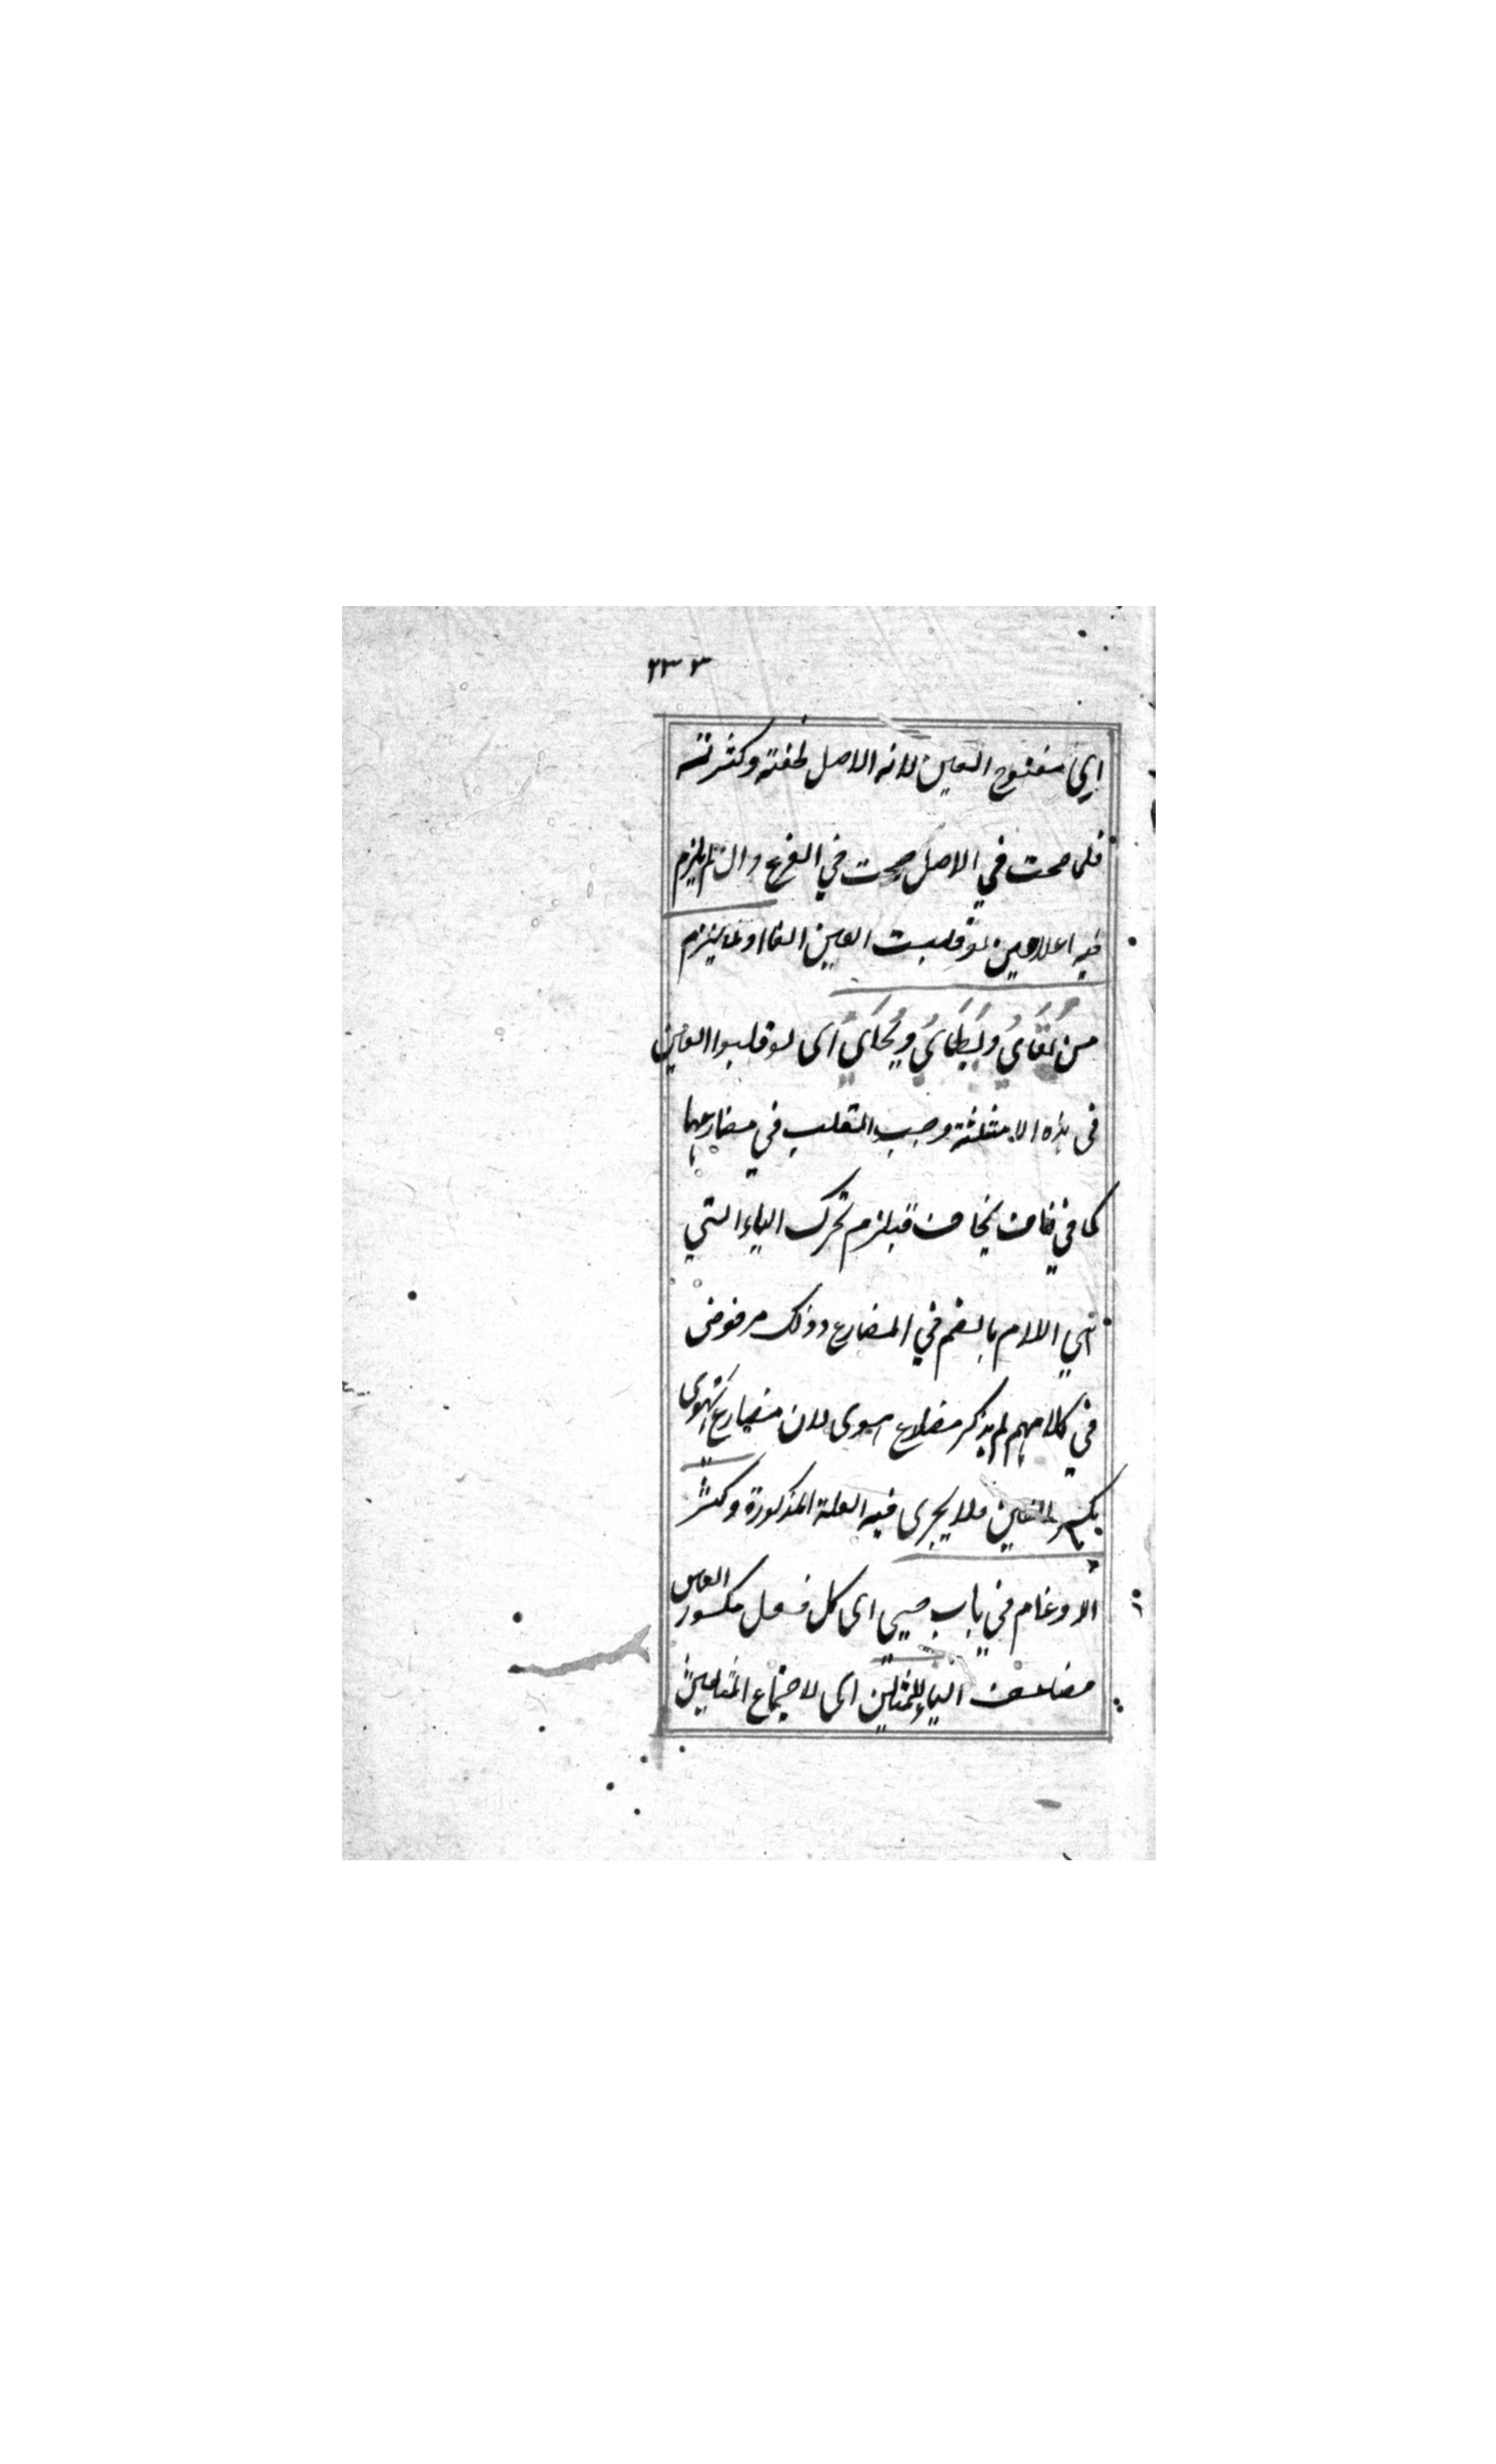 ٢٣٣
اي مفتوح العين لانه الاصل لخفته وكثرته
فلما صحت في الاصل صحت في الفرع وان لم يلزم
فيه اعلالين لو قلبت العين الفا او لما يلزم
من يَقَايُ ويَطَايُ ويَحَايُ اى لو قلبوا العين
فى هذه الامثلة وجب القلب في مضارعها
كما في خاف يخاف فيلزم تحرك الياء التي
هي اللام بالضم في المضارع وذلك مرفوض
في كلامهم لم يذكر مضارع هوى لان مضارع هوى
بكسر العين فلا يجرى فيه العلة المذكورة وكثر
الادغام في باب حيي اى كل فعل مكسور العين
مضاعف الياء للمثلين اى لاجتماع المثلين